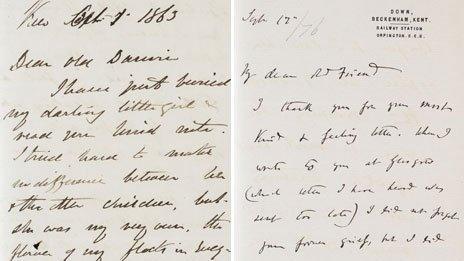 Kew 1863
Dear old Darwin
I have just buried
my darling little girl &
read your kind note.
I tried hard to make
no difference between her
& the other children, but
she was my very own, the
flower of my flock in every
Sept 17
DOWN,
BECKENHAM, KENT.
RAILWAY STATION
ORPINGTON. S.E.R.
My dear old Friend
I thank you for your most
kind & feeling letter. When I
wrote to you at Glasgow
(which letter I have heard was
sent too late) I did not forget
your former grief, but I did